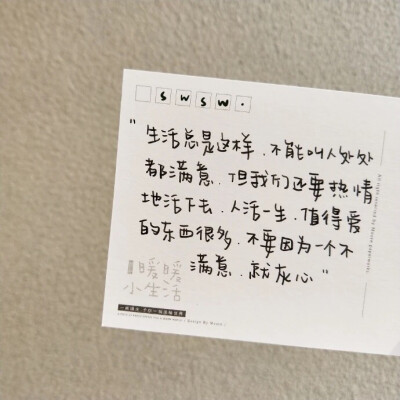 s w s w .
"生活总是这样.不能叫人处处
都满意.但我们还要热情
地活下去.人活一生.值得爱
的东西很多.不要因为一个不
满意.就灰心"
暖暖
小生活